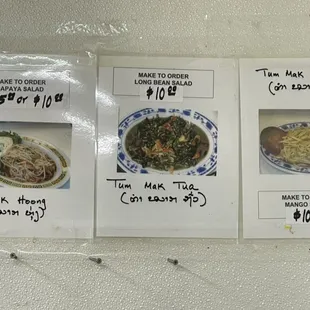 MAKE TO ORDER
APAYA SALAD
5 00 or $10 00
k Hoong
MAKE TO ORDER
LONG BEAN SALAD
$10 00
Tum Mak Tua
Tum Mak
MAKE TO
MANGO
$10